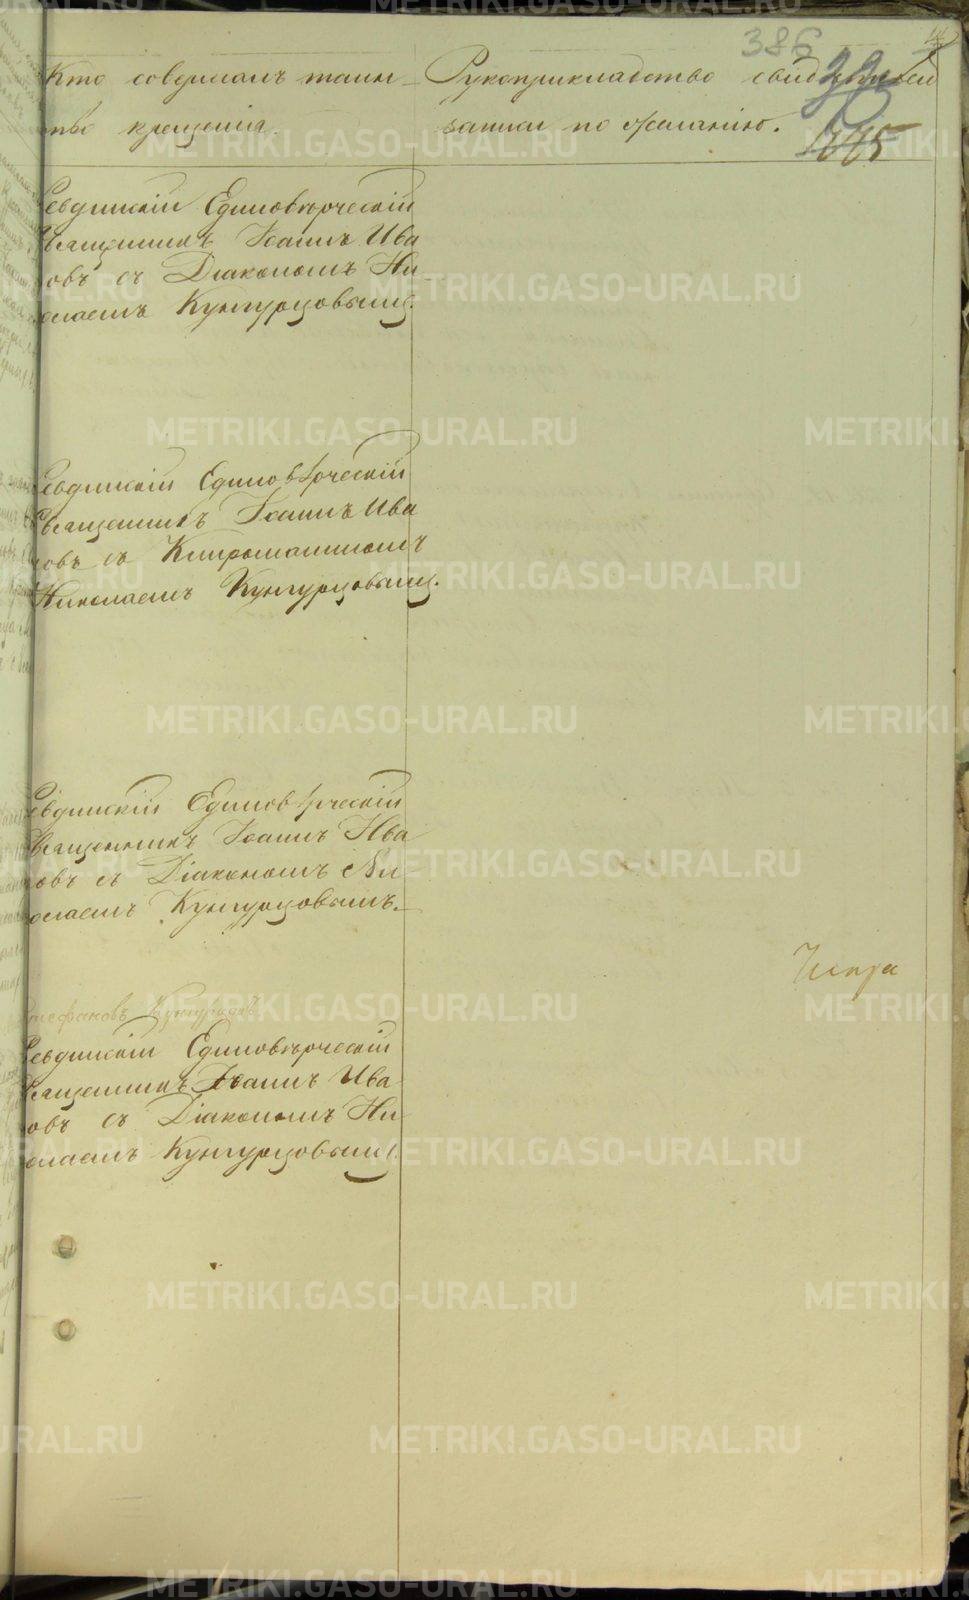 386
Кто совершалъ таин
ство крещенія.
Рукоприкладство свидѣтелей
записи по желанію.
Ревдинскій Единовѣрческій
Священникъ Іоаннъ Ива
новъ съ Діакономъ Ни
колаемъ Кунгурцовымъ.
Ревдинскій Единовѣрческій
Священникъ Іоаннъ Ива
новъ съ
Николаемъ Кунгурцовымъ.
Ревдинскій Единовѣрческій
Священникъ Іоаннъ Ива
новъ съ Діакономъ Ни
колаемъ Кунгурцовымъ.
Ревдинскій Единовѣрческій
Священникъ Іоаннъ Ива
новъ съ Діакономъ Ни
колаемъ Кунгурцовымъ.
METRIKI.GASO-URAL.RU